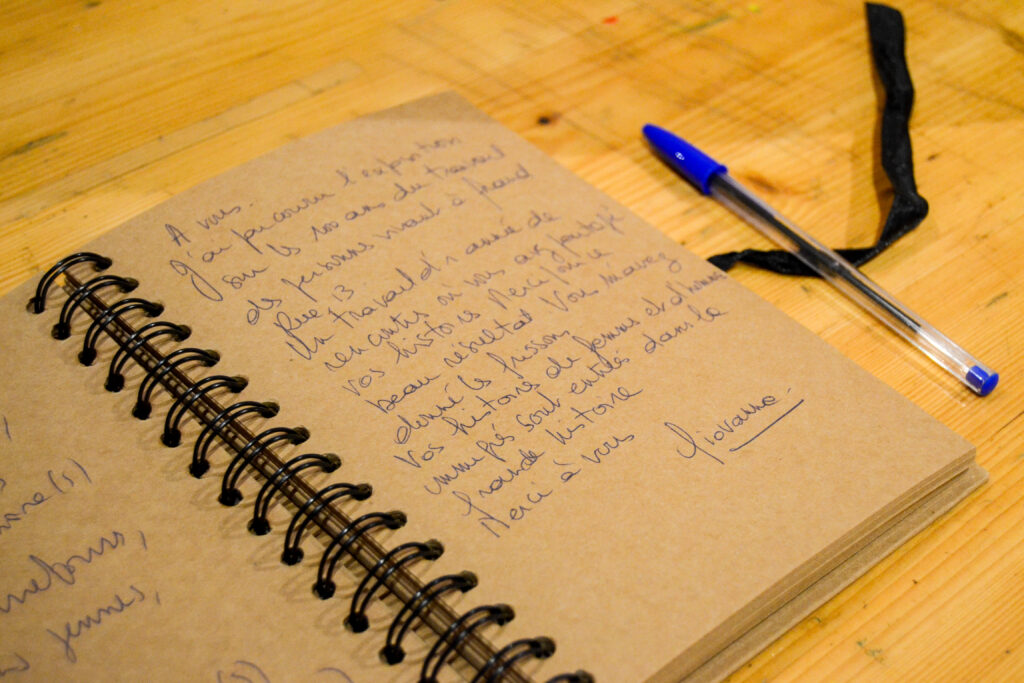 A vous.
J'ai parcouru l'exposition
sur les 100 ans du travail
des personnes vivant à
Rue 13
Un travail d'1 année de
rencontres où vous avez
vos histoires Merci pour ce
beau résultat Vous m'avez
donné les frissons
Vos histoires de femmes et d'hommes
immigrés sont entrées dans la
grande histoire
Merci à vous
Giovanna.
jennes,